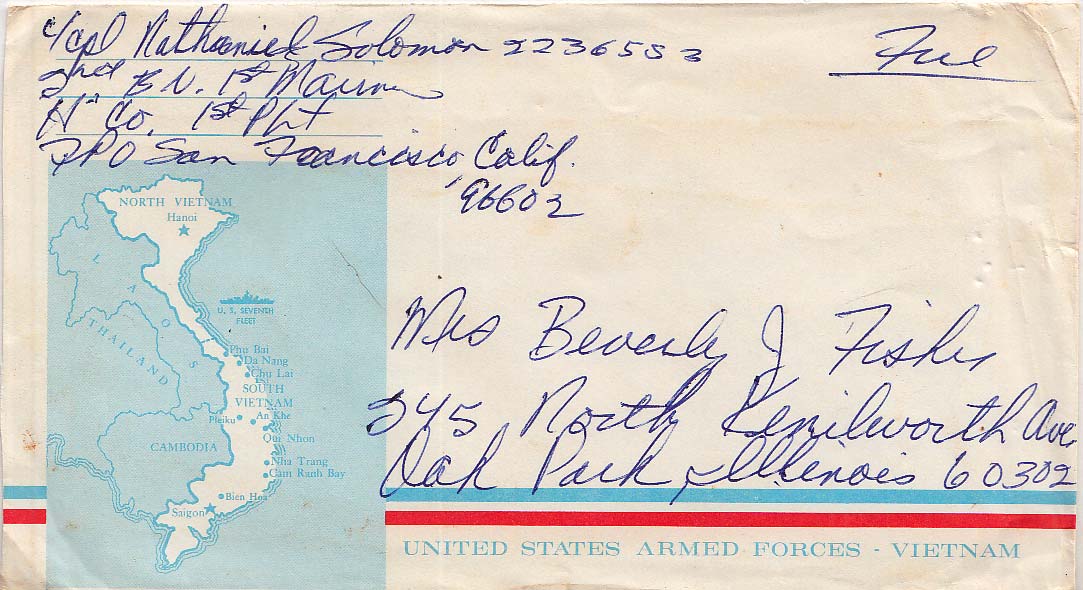 L/cpl Nathaniel Solomon 2236553
2nd BN. 1st Marines
"H" Co. 1st Plt
FPO San Francisco, Calif.
96602
Free
NORTH VIETNAM
Hanoi
LAOS
THAILAND
U. S. SEVENTH
FLEET
Phu Bai
Da Nang
Chu Lai
SOUTH
VIETNAM
Pleiku
An Khe
Qui Nhon
CAMBODIA
Nha Trang
Cam Ranh Bay
Bien Hoa
Saigon
Mrs Beverly J Fisher
245 North Kenilworth Ave.
Oak Park, Illinois 60302
UNITED STATES ARMED FORCES - VIETNAM